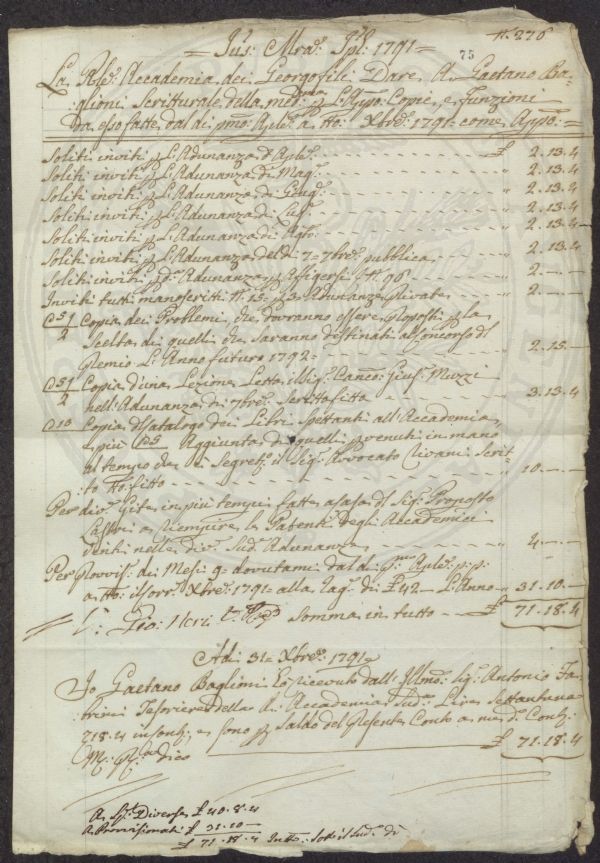 N. 276
75
1791
La Rle: Accademia dei Georgofili Dare A Gaetano Ba=
glioni Scritturale della med: p L'App.o Copie, e Funzioni
Da esso fatte dal di pmo: Aple: a tto: Xbre: 1791= come Appo:=
Soliti inviti p L'Adunanza d'Aple: £ 2.13.4
Soliti inviti p L'Adunanza di Mag: " 2.13.4
Soliti inviti p L'Adunanza di Giug: " 2.13.4
Soliti inviti p L'Adunanza di " 2.13.4
Soliti inviti p L'Adunanza di Agto: " 2.13.4
Soliti inviti p L'Adunanza del dì 7= 7bre: pubblica " 2.13.4
Soliti inviti p da: Adunanza p Affigersi N. 96 " 2.—
Inviti tutti manoscritti N. 15= p 3= Adunanze Private " 2.—
Copia dei Problemi, che dovranno essere Proposti p la
Scelta di quelli che saranno destinati al Concorso del
Premio L'Anno futuro 1792= " 2.15.—
Copia d'una Lezione Letta dal Sig: Canco: Gius: Muzzi
nell'Adunanza di 7bre: Scritto fitto " 3.13.4
Copia del Catalogo dei Libri Spettanti all'Accademia,
e più Aggiunta di quelli pervenuti in mano
al tempo che Segreto: il Sig: Avvocato Rivani Scrit=
to tto: fitto " 10.—.—
Per div: Gite in più tempi fatte a casa del Sig: Proposto
Lastri a riempire le Patenti degli Accademici
venti nelle div: Sud: Adunanze " 4.—.—
Per Provvis: di Mesi 9= dovutami dal di pmo: Aple: p:p:
a tto: il corr: Xbre: 1791= alla rag: di £ 42— L'Anno " 31.10.—
Gio: Neri Somma in tutto £ 71.18.4
Adi 31= Xbre: 1791=
Io Gaetano Baglioni ho ricevuto dall'Illmo: Sig: Antonio Fa=
brini Tesoriere della da: Accademia Sud: Lire Settantuna
e 18.4 in conti; e sono p Saldo del presente Conto a me d: Cont:
M: pp:a dico £ 71.18.4
A Spe: Diverse £ 40.8.4
A Provvisionati £ 31.10—
£ 71.18.4 In tto: sotto il Sud: dì